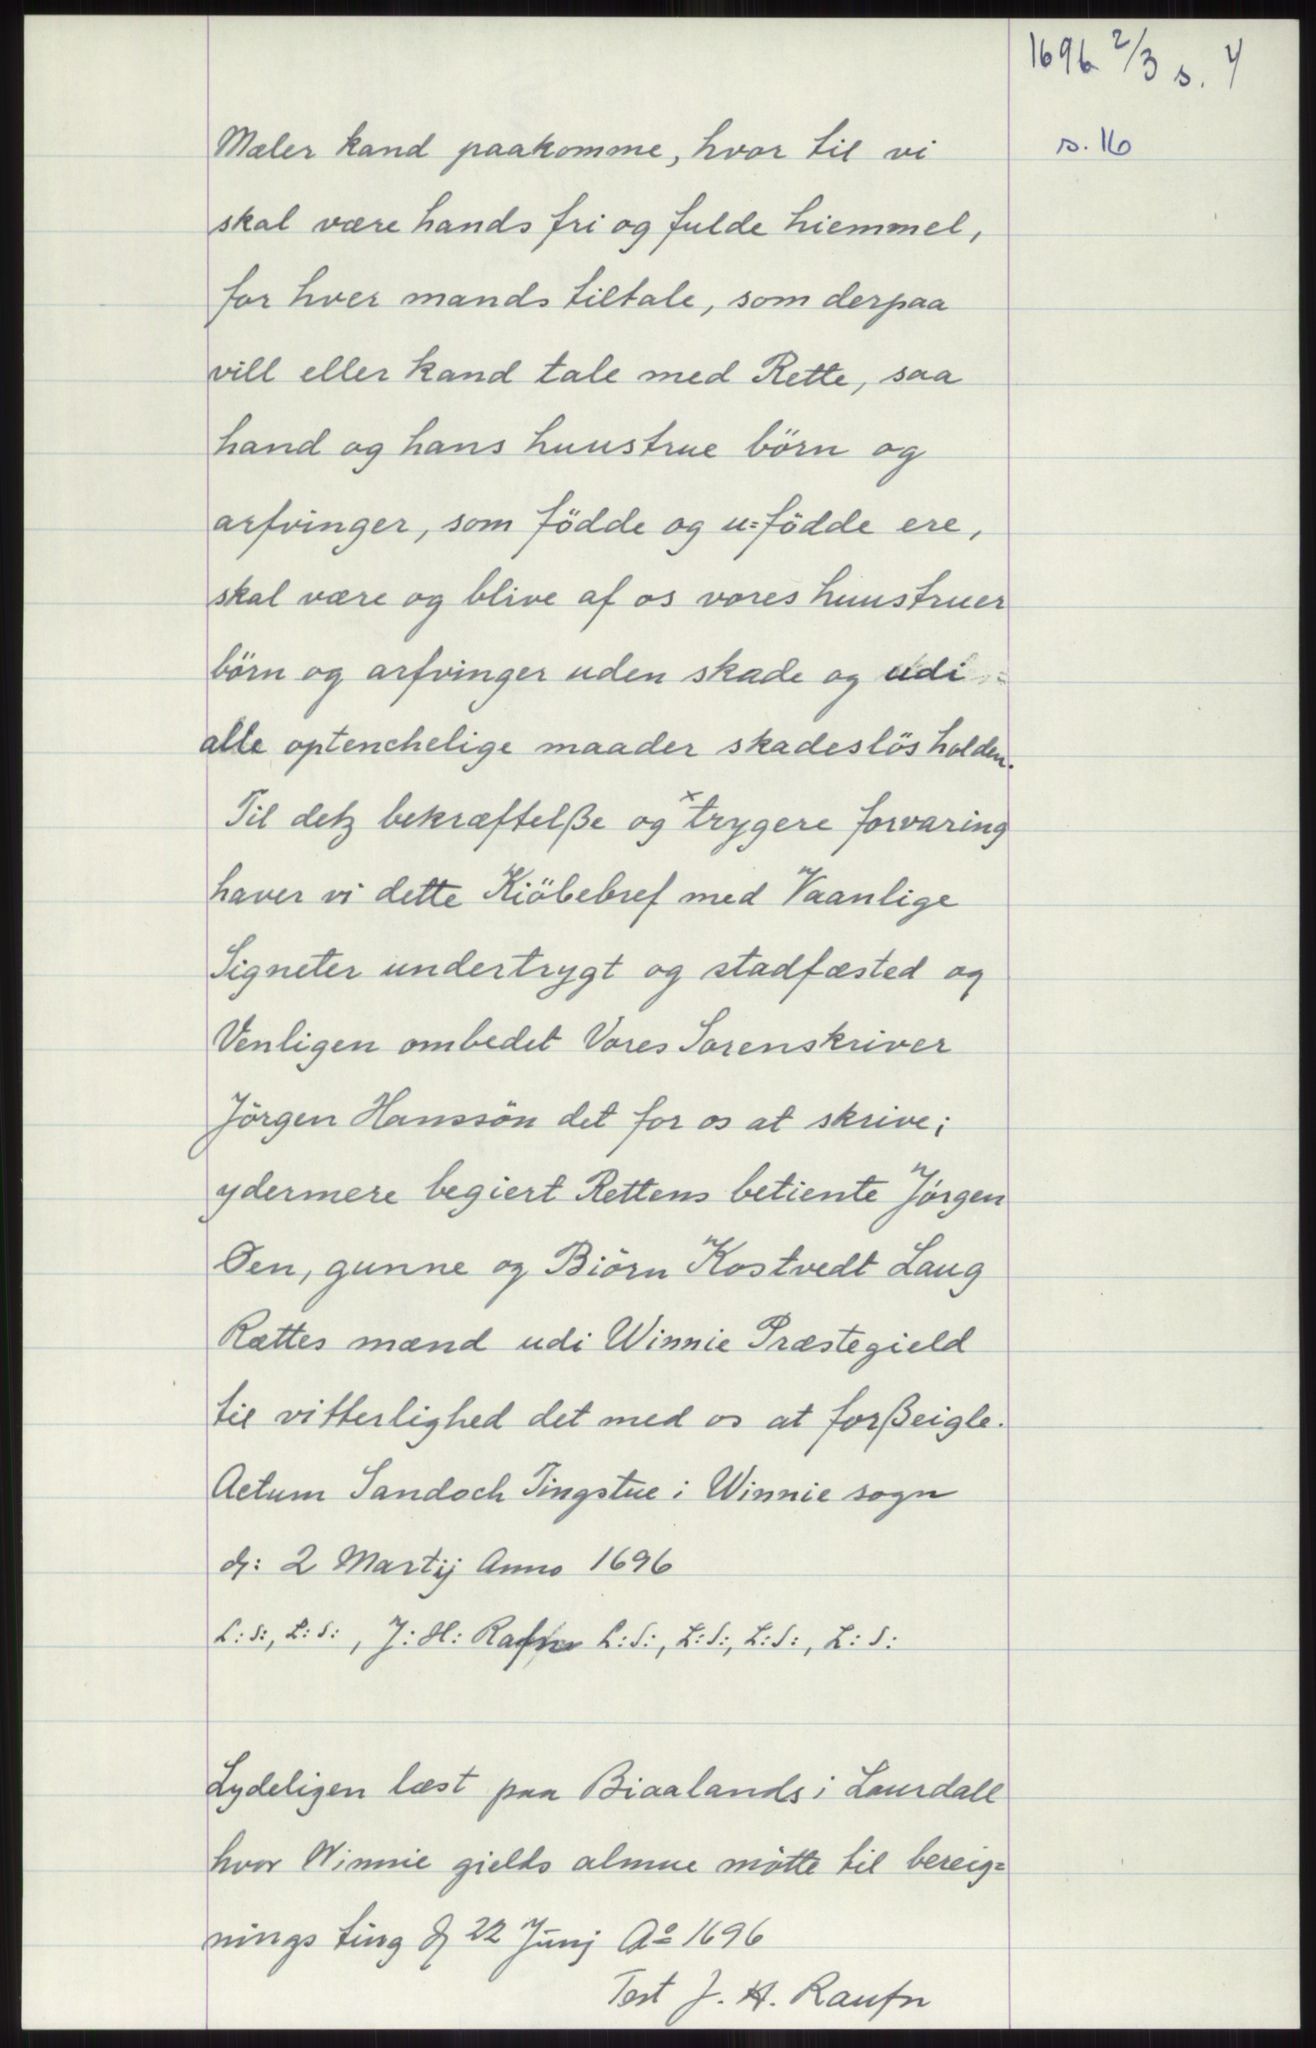 1696 2/3 s. 4
s. 16
Mæler kand paakomme, hvor til vi
skal være hands fri og fulde hiemmel,
for hver mands tiltale, som derpaa
vill eller kand tale med Rette, saa
hand og hans huustrue börn og
arfvinger, som födde og u=födde ere,
skal være og blive af os vores huustruer
börn og arfvinger uden skade og udi
alle optenchelige maader skadeslös holden.
Til detz bekræftelße og x trygere forvaring
haver vi dette Kiöbebref med Vaanlige
Signeter undertrygt og stadfæsted og
Venligen ombedet Vores Sorenskriver
Jörgen Hanssön det for os at skrive;
ydermere begiert Rettens betiente Jörgen
Øen, gunne og Biörn Kostvedt Laug
Rættes mænd udi Winnie Præstegield
til vitterlighed det med os at forßeigle.
Actum Sandoch Tingstue i Winnie sogn
d: 2 Martij Anno 1696
L: S:, L: S:, J: H: Rafn L: S:, L: S:, L: S:, L: S:
Lydeligen læst paa Biaalands i Laurdall
hvor Winnie gields almue mötte til bereig=
nings ting d 22 Junj Ao 1696
Test J. H. Raufn